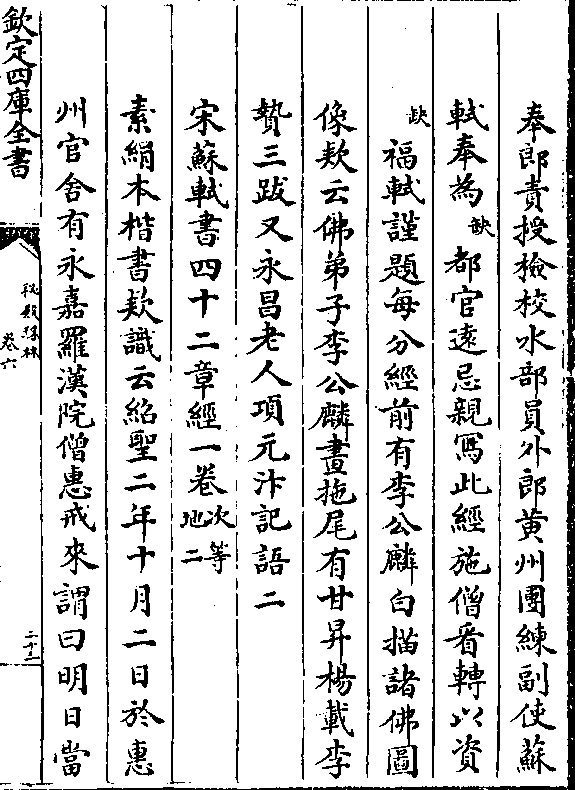 奉郎責授檢校水部員外郎黄州團練副使蘇
軾奉為缺都官遠忌親寫此經施僧看轉以資
缺福軾謹題每分經前有李公麟白描諸佛圖
像欵云佛弟子李公麟畫拖尾有甘昇楊載李
贄三跋又永昌老人項元汴記語二
宋蘇軾書四十二章經一卷次等地二
素絹本楷書欵識云紹聖二年十月二日於惠
州官舍有永嘉羅漢院僧惠戒來謂曰明日當
欽定四庫全書
祕殿珠林
卷六
二十二